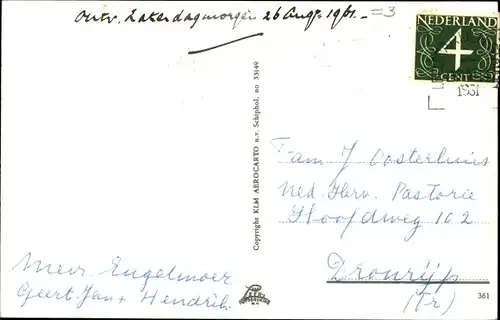 Ontv. Zaterdagmorgen 26 Aug. 1961. =3
NEDERLAND
4
CENT
1961
Copyright KLM AEROCARTO n.v. Schiphol, no 33149
Fam J Oosterhuis
Ned. Herv. Pastorie
Hoofdweg 102
Dronrijp
(Fr)
Mevr. Engelmoer
Geert-Jan + Hendrik.
361